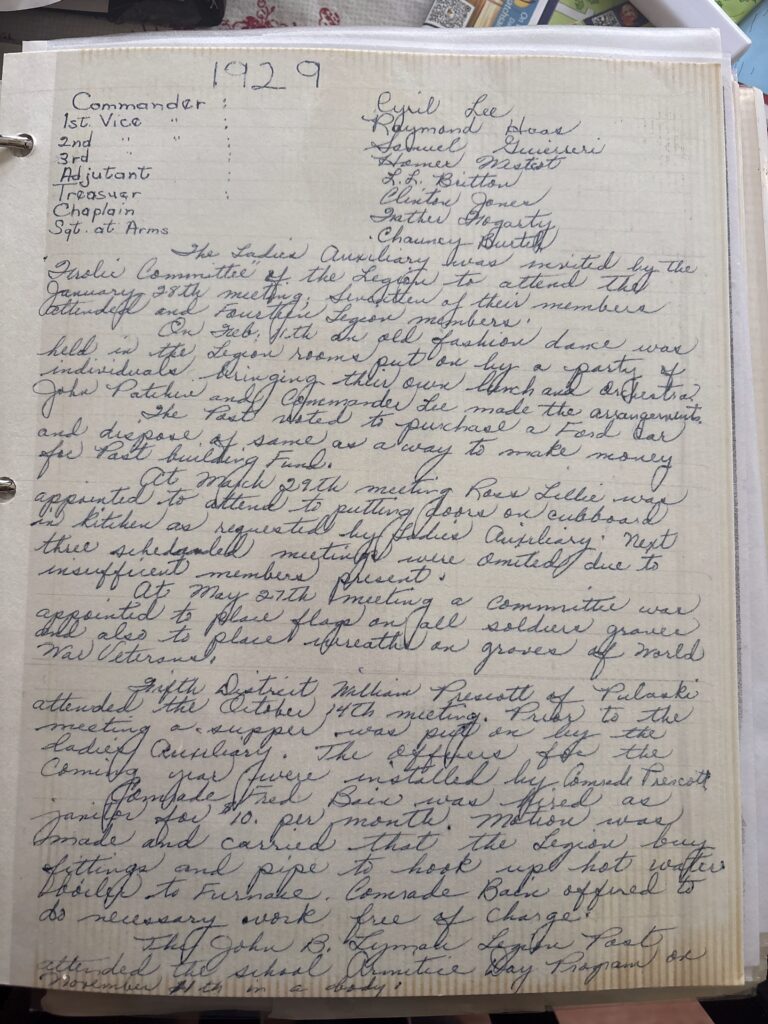 1929
Commander : Cyril Lee
1st. Vice " : Raymond Haas
2nd " " : Samuel Guierreri
3rd " : Homer
Adjutant : L.L. Britton
Treasuer : Clinton Jones
Chaplain Father Fogarty
Sgt. at Arms Chauncy
The Ladies Auxiliary was invited by the
"Frolic Committee" of the Legion to attend the
January 28th meeting; Seventeen of their members
attended and Fourteen Legion members.
On Feb. 11th an old fashion dance was
held in the Legion rooms put on by a party of
individuals bringing their own lunch and orchestra.
John Patchin and Commander Lee made the arrangements.
The Post voted to purchase a Ford Car
and dispose of same as a way to make money
for Post building Fund.
At March 29th meeting Ross Lillie was
appointed to attend to putting doors on cubboard
in kitchen as requested by Ladies Auxiliary. Next
three scheduled meetings were omited due to
insufficent members present.
At May 27th meeting a committee was
appointed to place flags on all soldiers graves
and also to place wreaths on graves of World
War Veterans.
Fifth District William Prescott of Pulaski
attended the October 14th meeting. Prior to the
meeting a supper was put on by the
Ladies Auxiliary. The officers for the
coming year were installed by Comrade Prescott.
Comrade Fred Bain was hired as
janitor for $10. per month. Motion was
made and carried that the Legion buy
fittings and pipe to hook up hot water
boiler to Furnace. Comrade Bain offered to
do necessary work free of charge.
The John B. Lyman Legion Post
attended the school Armitice Day Program on
November 11th in a body.